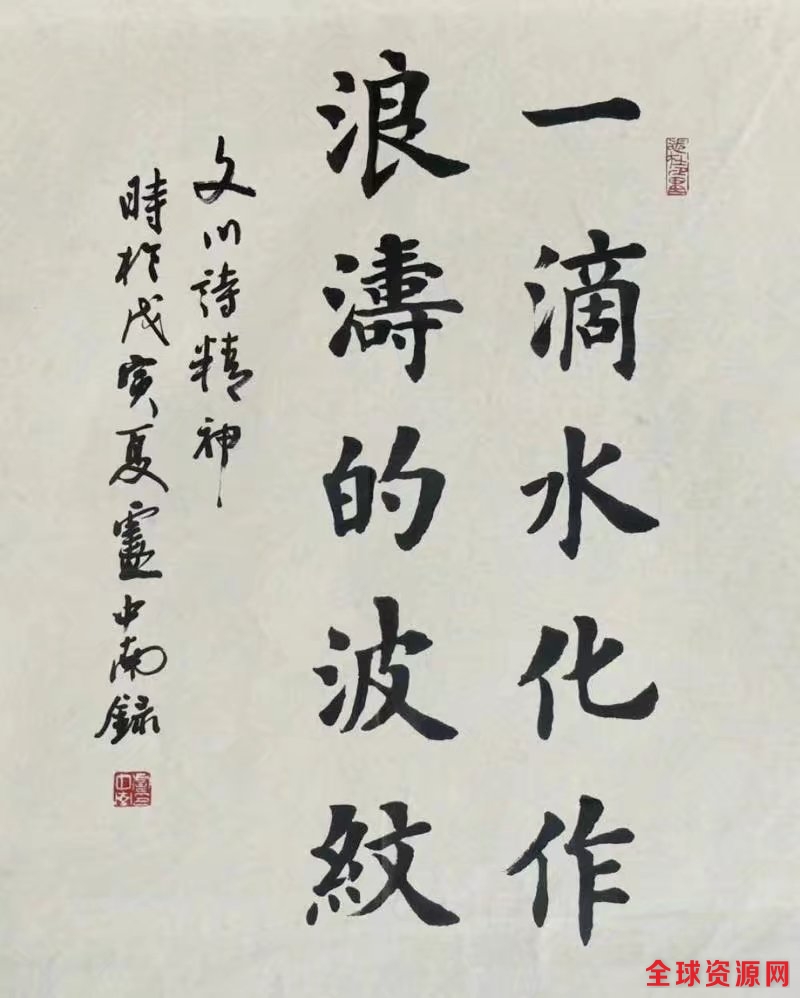 一滴水化作
浪濤的波紋
文川詩精神
時於戊寅夏靈中南錄
全球资源网